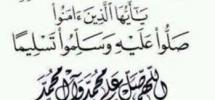 يَـٰٓأَيُّهَا ٱلَّذِينَ ءَامَنُوا۟
صَلُّوا۟ عَلَيْهِ وَسَلِّمُوا۟ تَسْلِيمًا
اللهم صل على محمد وآل محمد